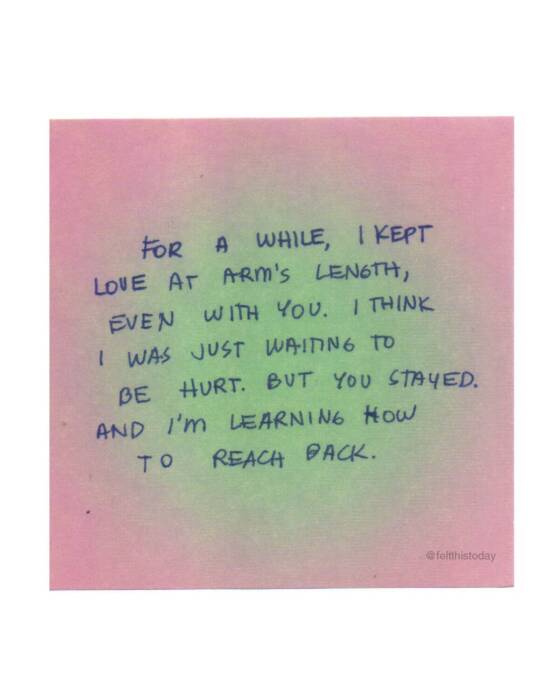 FOR A WHILE, I KEPT
LOVE AT ARM'S LENGTH,
EVEN WITH YOU. I THINK
I WAS JUST WAITING TO
BE HURT. BUT YOU STAYED.
AND I'M LEARNING HOW
TO REACH BACK.
@feltthistoday